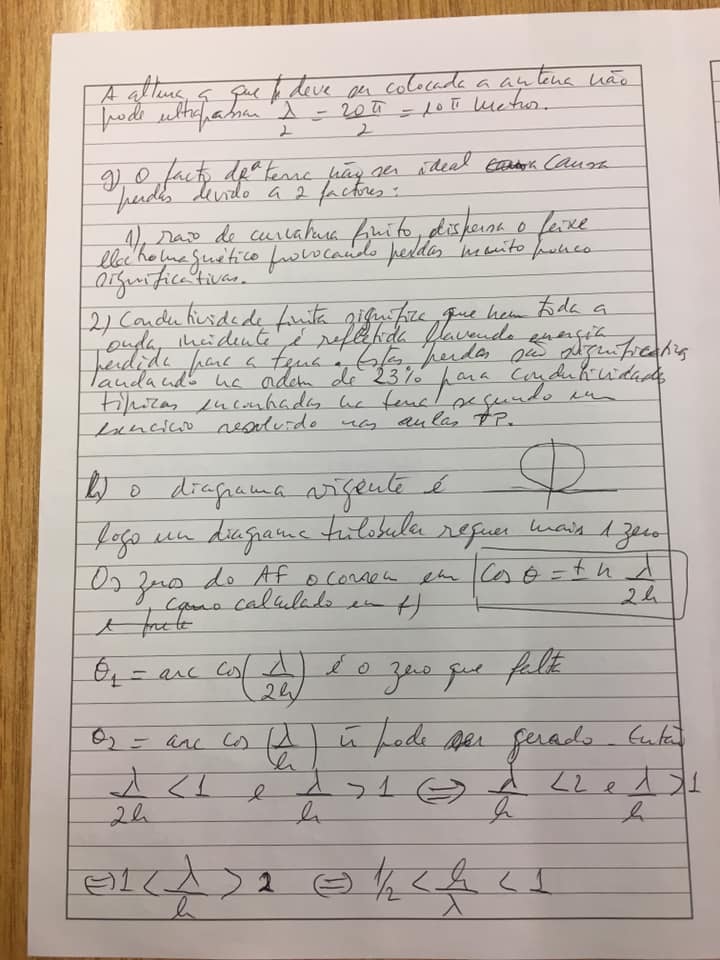 A altura a que h deve ser colocada a antena não
pode ultrapassar λ/2 = 20π/2 = 10π metros.
g) O facto de a terra não ser ideal causa
perdas devido a 2 factores:
1) raio de curvatura finito, dispersa o feixe
electromagnético provocando perdas muito pouco
significativas.
2) Condutividade finita significa que nem toda a
onda incidente é refletida havendo energia
perdida para a terra. Estas perdas são significativas
andando na ordem de 23% para condutividades
típicas encontradas na terra segundo um
exercício resolvido nas aulas TP.
h) o diagrama vigente é
logo um diagrama trilobular requer mais 1 zero
Os zeros do AF ocorrem em cos θ = ± n λ/2h
, como calculado em f)
θ1 = arc cos(λ/2h) é o zero que falta
θ2 = arc cos(λ/h) ñ pode ser gerado. Então
λ/2h < 1 e λ/h > 1 ⇔ λ/h < 2 e λ/h > 1
⇔ 1 < λ/h > 2 ⇔ 1/2 < h/λ < 1